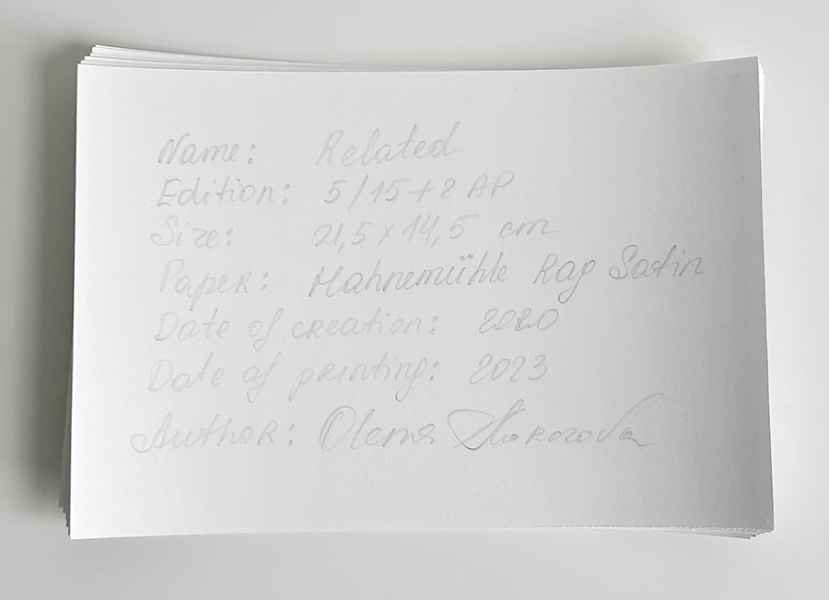 Name: Related
Edition: 5/15+2 AP
Size: 21,5 x 14,5 cm
Paper: Hahnemühle Rag Satin
Date of creation: 2020
Date of printing: 2023
Author: Olena